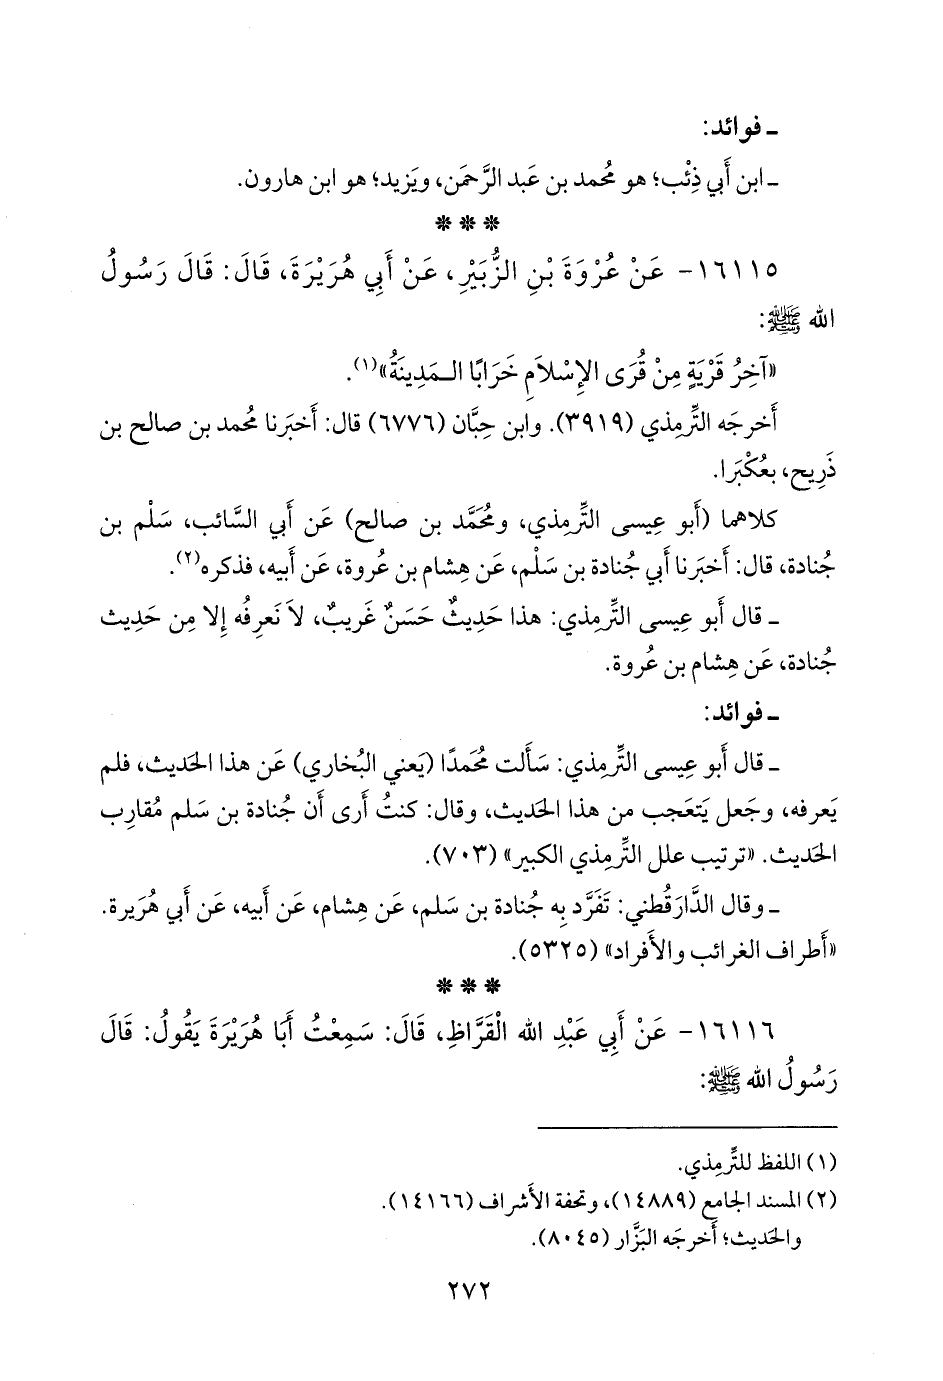 ـ فوائد:
ـ ابن أَبي ذِئْب؛ هو مُحمد بن عَبد الرَّحمَن، ويَزيد؛ هو ابن هارون.
* * *
١٦١١٥- عَنْ عُرْوَةَ بْنِ الزُّبَيْرِ، عَنْ أَبِي هُرَيْرَةَ، قَالَ: قَالَ رَسُولُ
الله ﷺ:
«آخِرُ قَرْيَةٍ مِنْ قُرَى الإِسْلاَمِ خَرَابًا الـمَدِينَةُ»(١).
أَخرجَه التِّرمِذي (٣٩١٩). وابن حِبَّان (٦٧٧٦) قال: أَخبَرنا مُحمد بن صالح بن
ذَرِيح، بعُكْبَرا.
كلاهما (أَبو عِيسى التِّرمِذي، ومُحَمَّد بن صالح) عَن أَبي السَّائب، سَلْم بن
جُنادة، قال: أَخبَرنا أَبي جُنادة بن سَلْم، عَن هِشام بن عُروة، عَن أَبيه، فذكره(٢).
ـ قال أَبو عِيسى التِّرمِذي: هذا حَدِيثٌ حَسَنٌ غَريبٌ، لاَ نَعرِفُه إِلا مِن حَدِيث
جُنادة، عَن هِشام بن عُروة.
ـ فوائد:
ـ قال أَبو عِيسى التِّرمِذي: سَأَلت مُحَمدًا (يَعني البُخاري) عَن هذا الحَديث، فلم
يَعرفه، وجَعل يَتَعَجب من هذا الحَديث، وقال: كنتُ أَرى أَن جُنادة بن سَلم مُقارِب
الحَديث. «ترتيب علل التِّرمذي الكبير» (٧٠٣).
ـ وقال الدَّارَقُطني: تَفَرَّد بِه جُنادة بن سَلم، عَن هِشام، عَن أَبيه، عَن أَبي هُرَيرة.
«أَطراف الغرائب والأَفراد» (٥٣٢٥).
* * *
١٦١١٦- عَنْ أَبِي عَبْدِ الله الْقَرَّاظِ، قَالَ: سَمِعْتُ أَبَا هُرَيْرَةَ يَقُولُ: قَالَ
رَسُولُ الله ﷺ:
(١) اللفظ للتِّرمِذي.
(٢) المسند الجامع (١٤٨٨٩)، وتحفة الأَشراف (١٤١٦٦).
والحَديث؛ أَخرجَه البَزَّار (٨٠٤٥).
٢٧٢